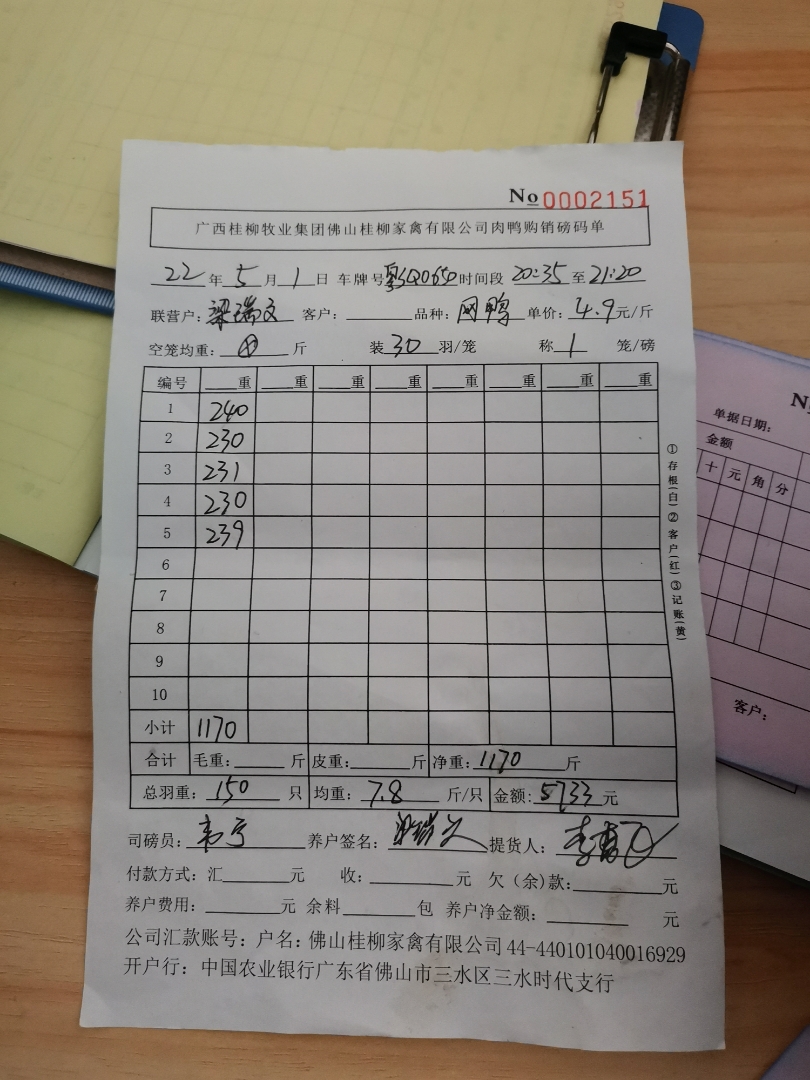 No 0002151
广西桂柳牧业集团佛山桂柳家禽有限公司肉鸭购销磅码单
22年5月1日 车牌号 Q0650 时间段 20:35 至 21:20
联营户: 梁瑞文 客户: 品种: 鸭 单价: 4.9元/斤
空笼均重: 斤 装30羽/笼 称1笼/磅
编号 重 重 重 重 重 重 重 重
1 240
2 230
3 231
4 230
5 239
6
7
8
9
10
小计 1170
合计 毛重: 斤 皮重: 斤 净重: 1170 斤
总羽重: 150 只 均重: 7.8 斤/只 金额: 5733 元
司磅员: 养户签名: 梁瑞文 提货人:
付款方式: 汇 元 收: 元 欠(余)款: 元
养户费用: 元 余料 包 养户净金额: 元
公司汇款账号: 户名: 佛山桂柳家禽有限公司 44-440101040016929
开户行: 中国农业银行广东省佛山市三水区三水时代支行
①存根(白)②客户(红)③记账(黄)
N
单据日期:
金额
十 元 角 分
客户: